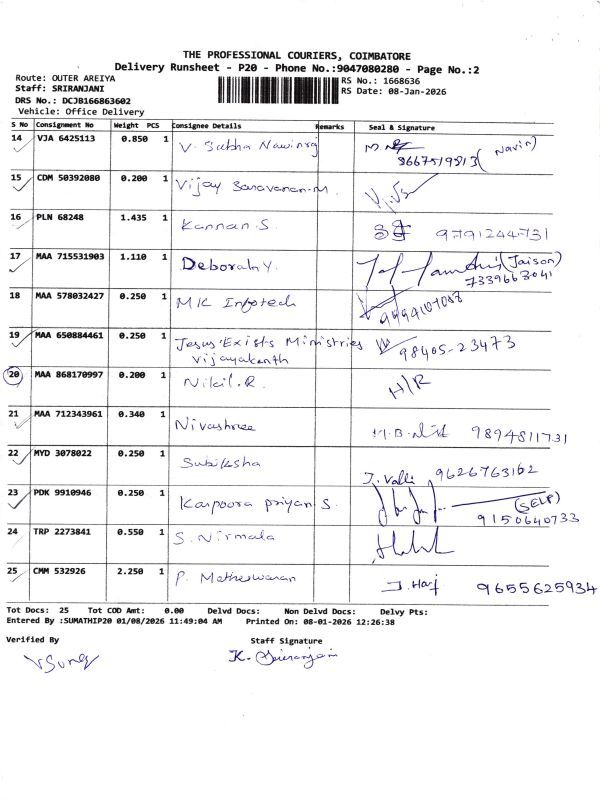 THE PROFESSIONAL COURIERS, COIMBATORE
Delivery Runsheet - P20 - Phone No.:9047080280 - Page No.:2
Route: OUTER AREIYA
RS No.: 1668636
Staff: SRIRANJANI
RS Date: 08-Jan-2026
DRS No.: DCJB166863602
Vehicle: Office Delivery
S No Consignment No Weight PCS Consignee Details Remarks Seal & Signature
14 VJA 6425113 0.850 1 V. Sabha Nawinrg (Navin)
8667519813
15 CDM 50392080 0.200 1 Vijay Saravanan.M.
16 PLN 68248 1.435 1 Kannan.S. 9791244731
17 MAA 715531903 1.110 1 Deborah.Y. (Jaison)
7339663041
18 MAA 578032427 0.250 1 MK Infotech
19 MAA 650884461 0.250 1 Jesus Exists Ministries 98405-23473
Vijayakanth
20 MAA 868170997 0.200 1 Nikil.R. H/R
21 MAA 712343961 0.340 1 Nivashree 9894811731
22 MYD 3078022 0.250 1 Subiksha J. Valli 9626763162
23 PDK 9910946 0.250 1 Karpoora priyan S. (SELF)
9150640733
24 TRP 2273841 0.550 1 S. Nirmala
25 CMM 532926 2.250 1 P. Matheswaran J. Hari 9655625934
Tot Docs: 25 Tot COD Amt: 0.00 Delvd Docs: Non Delvd Docs: Delvy Pts:
Entered By :SUMATHIP20 01/08/2026 11:49:04 AM Printed On: 08-01-2026 12:26:38
Verified By Staff Signature
K. Sriranjani